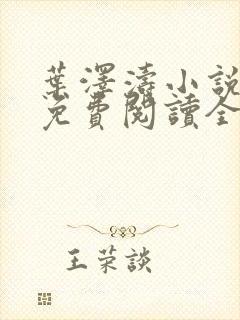 葉澤濤小說
免費閱讀全
王荣談